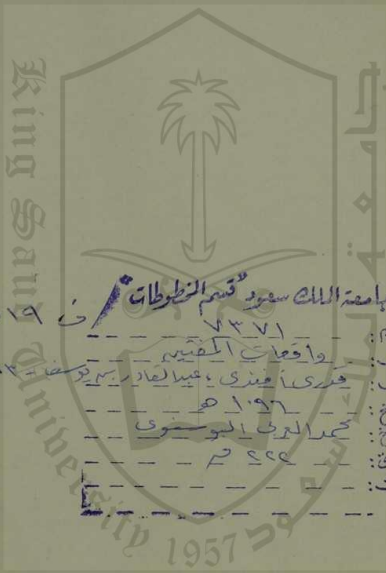 King Saud University 1957
جامعة الملك سعود "قسم المخطوطات"
ف ١٩
٧٣٧١
واقعات المفتين
قدرى أفندى، عبدالقادر بن يوسف
١٠٩٦ هـ
محمد العربى البوسنوى
٢٢٢